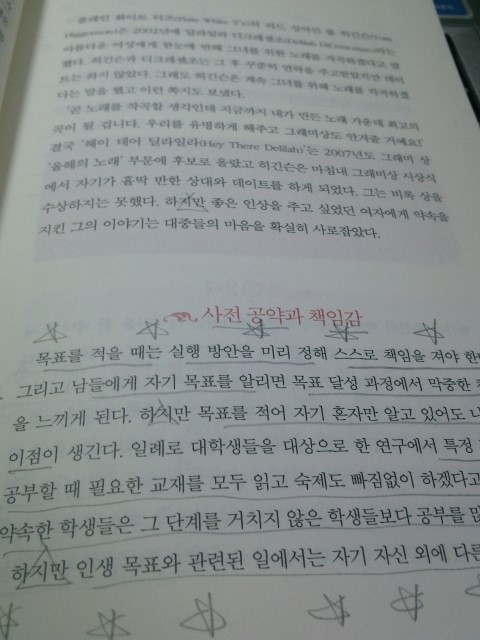 플레인 화이트 티즈(Plain White T's)의 리드 싱어인 톰 히긴슨(Tom
Higgenson)은 2002년에 딜라일라 디크레센조(Delilah DiCrescenzo)라는
아름다운 여성에게 한눈에 반해 그녀를 위한 노래를 작곡하겠다고 말
했다. 히긴슨과 디크레센조는 그 후 꾸준히 연락을 주고받았지만 데이
트는 하지 않았다. 그래도 히긴슨은 계속 그녀를 위해 노래를 작곡하겠
다는 말을 했고 이런 쪽지도 보냈다.
'곧 노래를 작곡할 생각인데 지금까지 내가 만든 노래 가운데 최고의
곡이 될 겁니다. 우리를 유명하게 해주고 그래미상도 안겨줄 거예요!'
결국 '헤이 데어 딜라일라(Hey There Delilah)'는 2007년도 그래미 상
'올해의 노래' 부문에 후보로 올랐고 히긴슨은 마침내 그래미상 시상식
에서 자기가 홀딱 반한 상대와 데이트를 하게 되었다. 그는 비록 상을
수상하지는 못했다. 하지만 좋은 인상을 주고 싶었던 여자에게 약속을
지킨 그의 이야기는 대중들의 마음을 확실히 사로잡았다.
사전 공약과 책임감
목표를 적을 때는 실행 방안을 미리 정해 스스로 책임을 져야 한
그리고 남들에게 자기 목표를 알리면 목표 달성 과정에서 막중한
을 느끼게 된다. 하지만 목표를 적어 자기 혼자만 알고 있어도
이점이 생긴다. 일례로 대학생들을 대상으로 한 연구에서 특정
공부할 때 필요한 교재를 모두 읽고 숙제도 빠짐없이 하겠다고
약속한 학생들은 그 단계를 거치지 않은 학생들보다 공부를
하지만 인생 목표와 관련된 일에서는 자기 자신 외에 다른